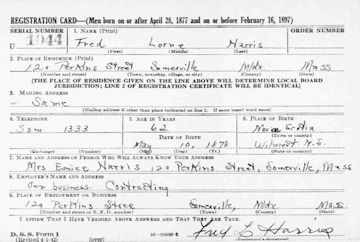 REGISTRATION CARD—(Men born on or after April 28, 1877 and on or before February 16, 1897)
SERIAL NUMBER 1. NAME (Print) ORDER NUMBER
U 1944 Fred Lorne Harris
(First) (Middle) (Last)
2. PLACE OF RESIDENCE (Print)
120 Perkins Street Somerville Midx Mass
(Number and street) (Town, township, village, or city) (County) (State)
[THE PLACE OF RESIDENCE GIVEN ON THE LINE ABOVE WILL DETERMINE LOCAL BOARD
JURISDICTION; LINE 2 OF REGISTRATION CERTIFICATE WILL BE IDENTICAL]
3. MAILING ADDRESS
Same
[Mailing address if other than place indicated on line 2. If same insert word same]
4. TELEPHONE 5. AGE IN YEARS 6. PLACE OF BIRTH
Som 1333 62 Nova Scotia
DATE OF BIRTH (Town or county)
May 10, 1878 N.S.
(Exchange) (Number) (Mo.) (Day) (Yr.) (State or country)
7. NAME AND ADDRESS OF PERSON WHO WILL ALWAYS KNOW YOUR ADDRESS
Mrs Eunice Harris 120 Perkins Street, Somerville, Mass
8. EMPLOYER'S NAME AND ADDRESS
Own business- Contracting
9. PLACE OF EMPLOYMENT OR BUSINESS
120 Perkins Stree Somerville, Midx Mass
(Number and street or R. F. D. number) (Town) (County) (State)
I AFFIRM THAT I HAVE VERIFIED ABOVE ANSWERS AND THAT THEY ARE TRUE.
D. S. S. Form 1 Fred L Harris
(Revised 4-1-42) (over) (Registrant's signature)